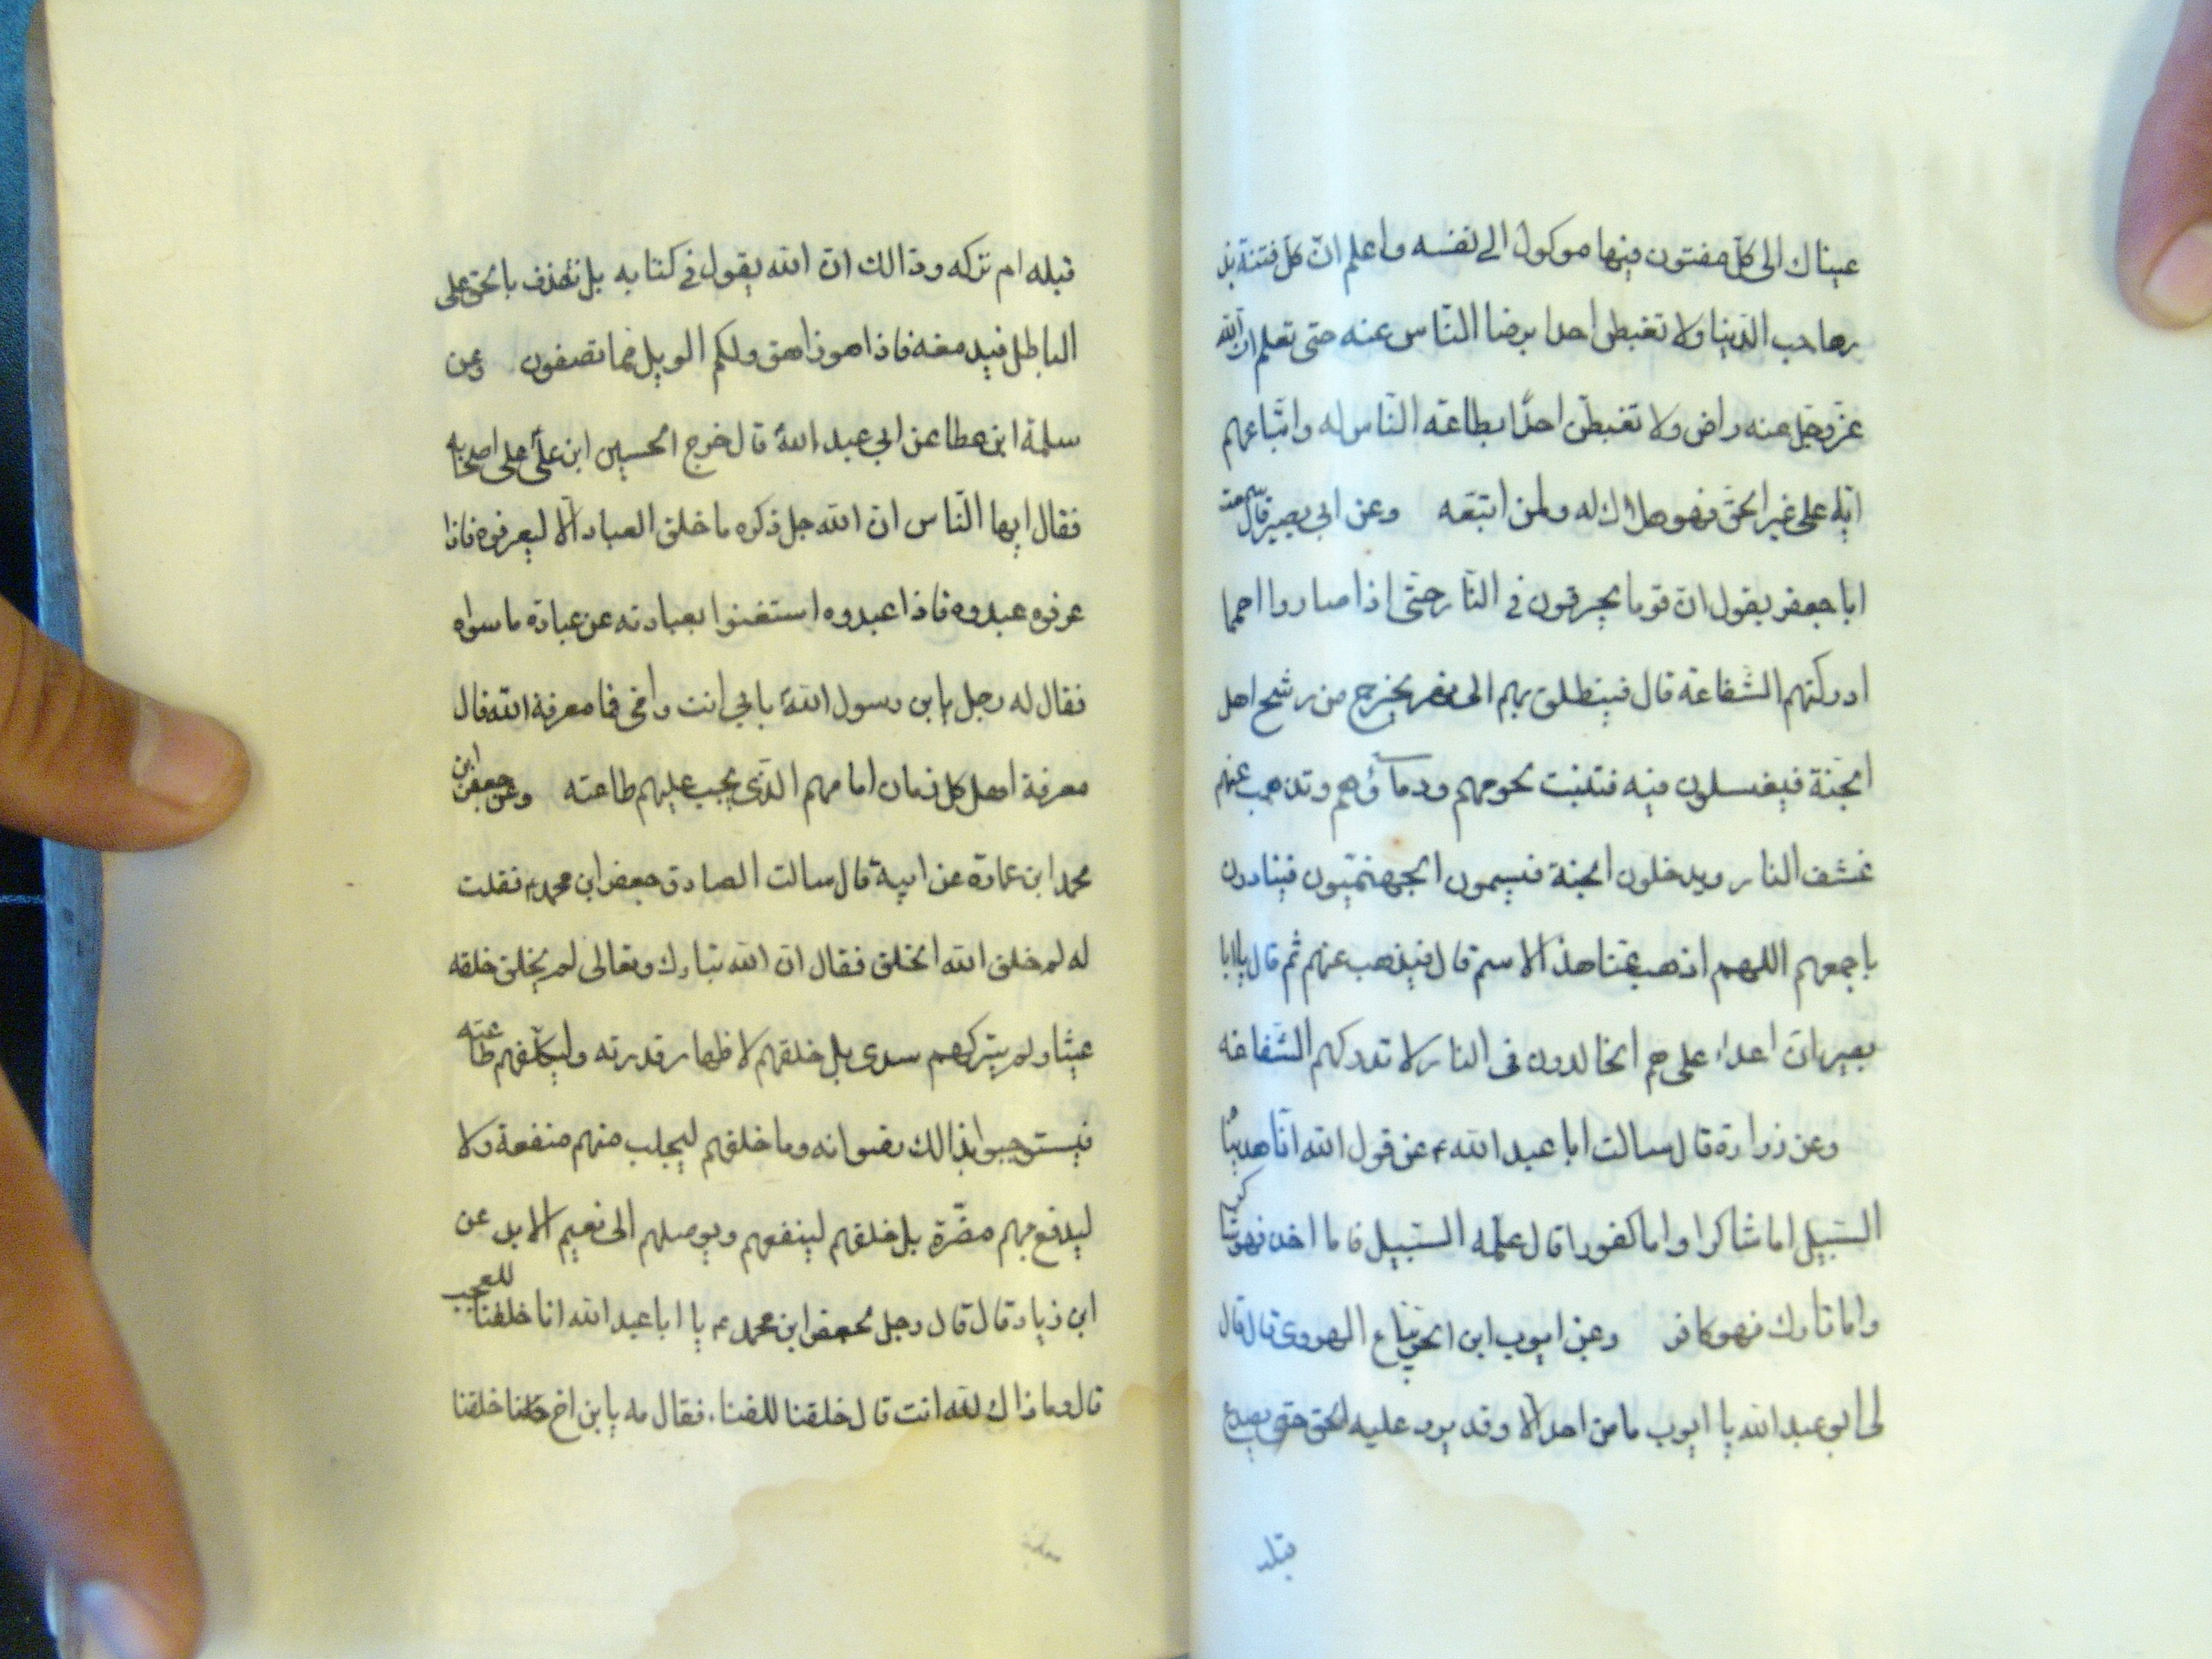 عيناك الى كلّ مفتون فيها موكول الى نفسه واعلم انّ كل فتنة بذ
رها حب الدّنيا ولا تغبطن احدا برضا النّاس عنه حتى تعلم ان الله
عزّ وجلّ عنه راض ولا تغبطنّ احدًا بطاعة النّاس له واتباعهم
ايّاه على غير الحقّ فهو هلاك له ولمن اتبعه وعن ابي بصير قال سمعت
ابا جعفر يقول انّ قوما يحرقون في النّار حتّى اذا صاروا احمما
ادركتهم الشّفاعة قال فينطلق بهم الى نهر يخرج من رشح اهل
الجنّة فيغسلون فيه فتنبت لحومهم ودماؤهم وتذهب عنهم
غشف النار ويدخلون الجنة فيسمون الجهنميّون فينادون
باجمعهم اللهم اذهب عنّا هذا الاسم قال فيذهب عنهم ثم قال يا ابا
بصير انّ اعداء على هم الخالدون فى النار لا تدركهم الشّفاعة
وعن زرارة قال سالت ابا عبد الله ع عن قول الله انّا هديناه
السّبيل اما شاكرا واما كفورا قال علّمه السّبيل فاما اخذ فهو شاكر
واما تارك فهو كافر وعن ايوب ابن الحر بيّاع الهروى قال قال
لى ابو عبد الله يا ايوب ما من احد الا وقد يرد عليه الحق حتى يصدع
قبله
قبله ام تركه وذالك ان الله يقول في كتابه بل نقذف بالحق على
الباطل فيدمغه فاذا هو زاهق ولكم الويل مما تصفون وعن
سلمة ابن عطا عن ابي عبد الله ع قال خرج الحسين ابن علىّ على اصحابه
فقال ايها النّاس ان الله جل ذكره ما خلق العباد الا ليعرفوه فاذا
عرفوه عبدوه فاذا عبدوه استغنوا بعبادته عن عبادة ما سواه
فقال له رجل يا بن رسول الله بابي انت وامّى فما معرفة الله قال
معرفة اهل كل زمان امامهم الذّى يجب عليهم طاعته وعن جعفر ابن
محمد ابن عمارة عن ابيه قال سالت الصادق جعفر ابن محمد ع فقلت
له لم خلق الله الخلق فقال ان الله تبارك وتعالى لم يخلق خلقه
عبثا ولم يتركهم سدى بل خلقهم لاظهار قدرته وليكلّفهم طاعته
فيستوجبوا بذالك رضوانه وما خلقهم ليجلب منهم منفعة ولا
ليدفع بهم مضّرة بل خلقهم لينفعهم ويوصلهم الى نعيم الابد عن
ابن زياد قال قال رجل لجعفر ابن محمد ع يا ابا عبد الله انا خلقنا للعجب
قال وما ذاك لله انت قال خلقنا للفناء فقال مه يا بن اخ خلقنا